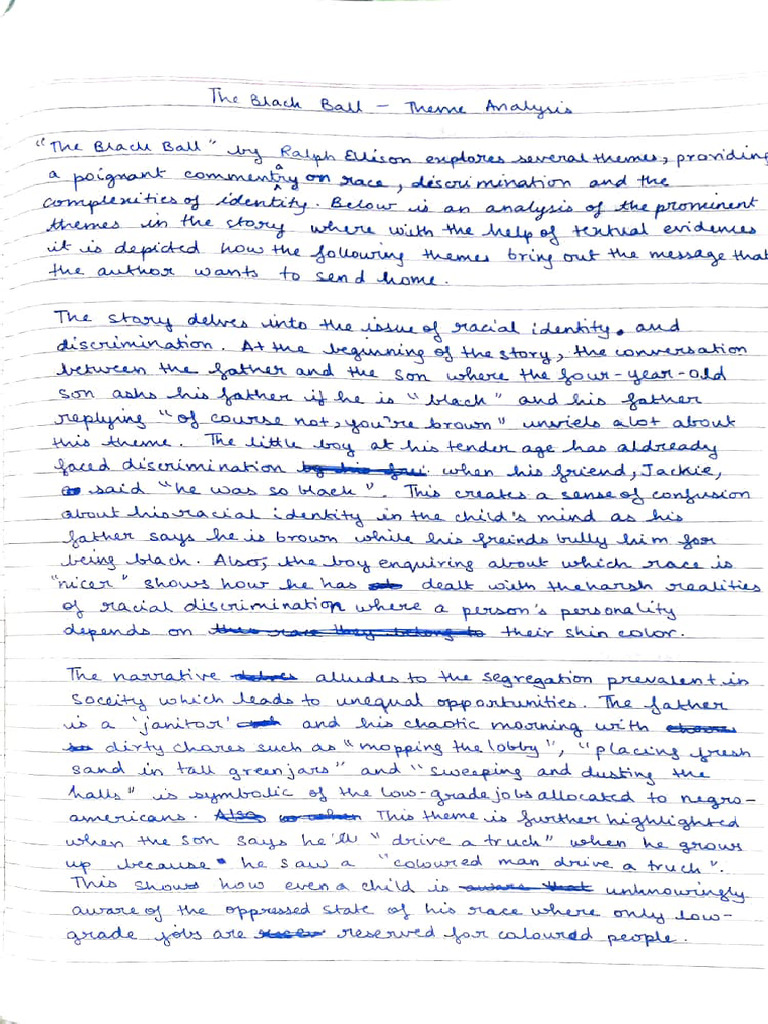 The Black Ball - Theme Analysis
"The Black Ball" by Ralph Ellison explores several themes, providing
a poignant commentary on race, discrimination and the
complexities of identity. Below is an analysis of the prominent
themes in the story where with the help of textual evidences
it is depicted how the following themes bring out the message that
the author wants to send home.
The story delves into the issue of racial identity. and
discrimination. At the beginning of the story, the conversation
between the father and the son where the four-year-old
son asks his father if he is "black" and his father
replying "of course not, you're brown" unviels a lot about
this theme. The little boy at his tender age has aldready
faced discrimination by his when his friend, Jackie,
said "he was so black". This creates a sense of confusion
about his racial identity in the child's mind as his
father says he is brown while his freinds bully him for
being black. Also, the boy enquiring about which race is
"nicer" shows how he has dealt with the harsh realities
of racial discrimination where a person's personality
depends on the race they belong to their skin color.
The narrative delves alludes to the segregation prevalent in
soceity which leads to unequal opportunities. The father
is a 'janitor' and his chaotic morning with
dirty chores such as "mopping the lobby", "placing fresh
sand in tall green jars" and "sweeping and dusting the
halls" is symbolic of the low-grade jobs allocated to negro-
americans. Also when This theme is further highlighted
when the son says he'll "drive a truck" when he grows
up because he saw a "coloured man drive a truck".
This shows how even a child is aware that unknowingly
aware of the oppressed state of his race where only low-
grade jobs are reserved for coloured people.